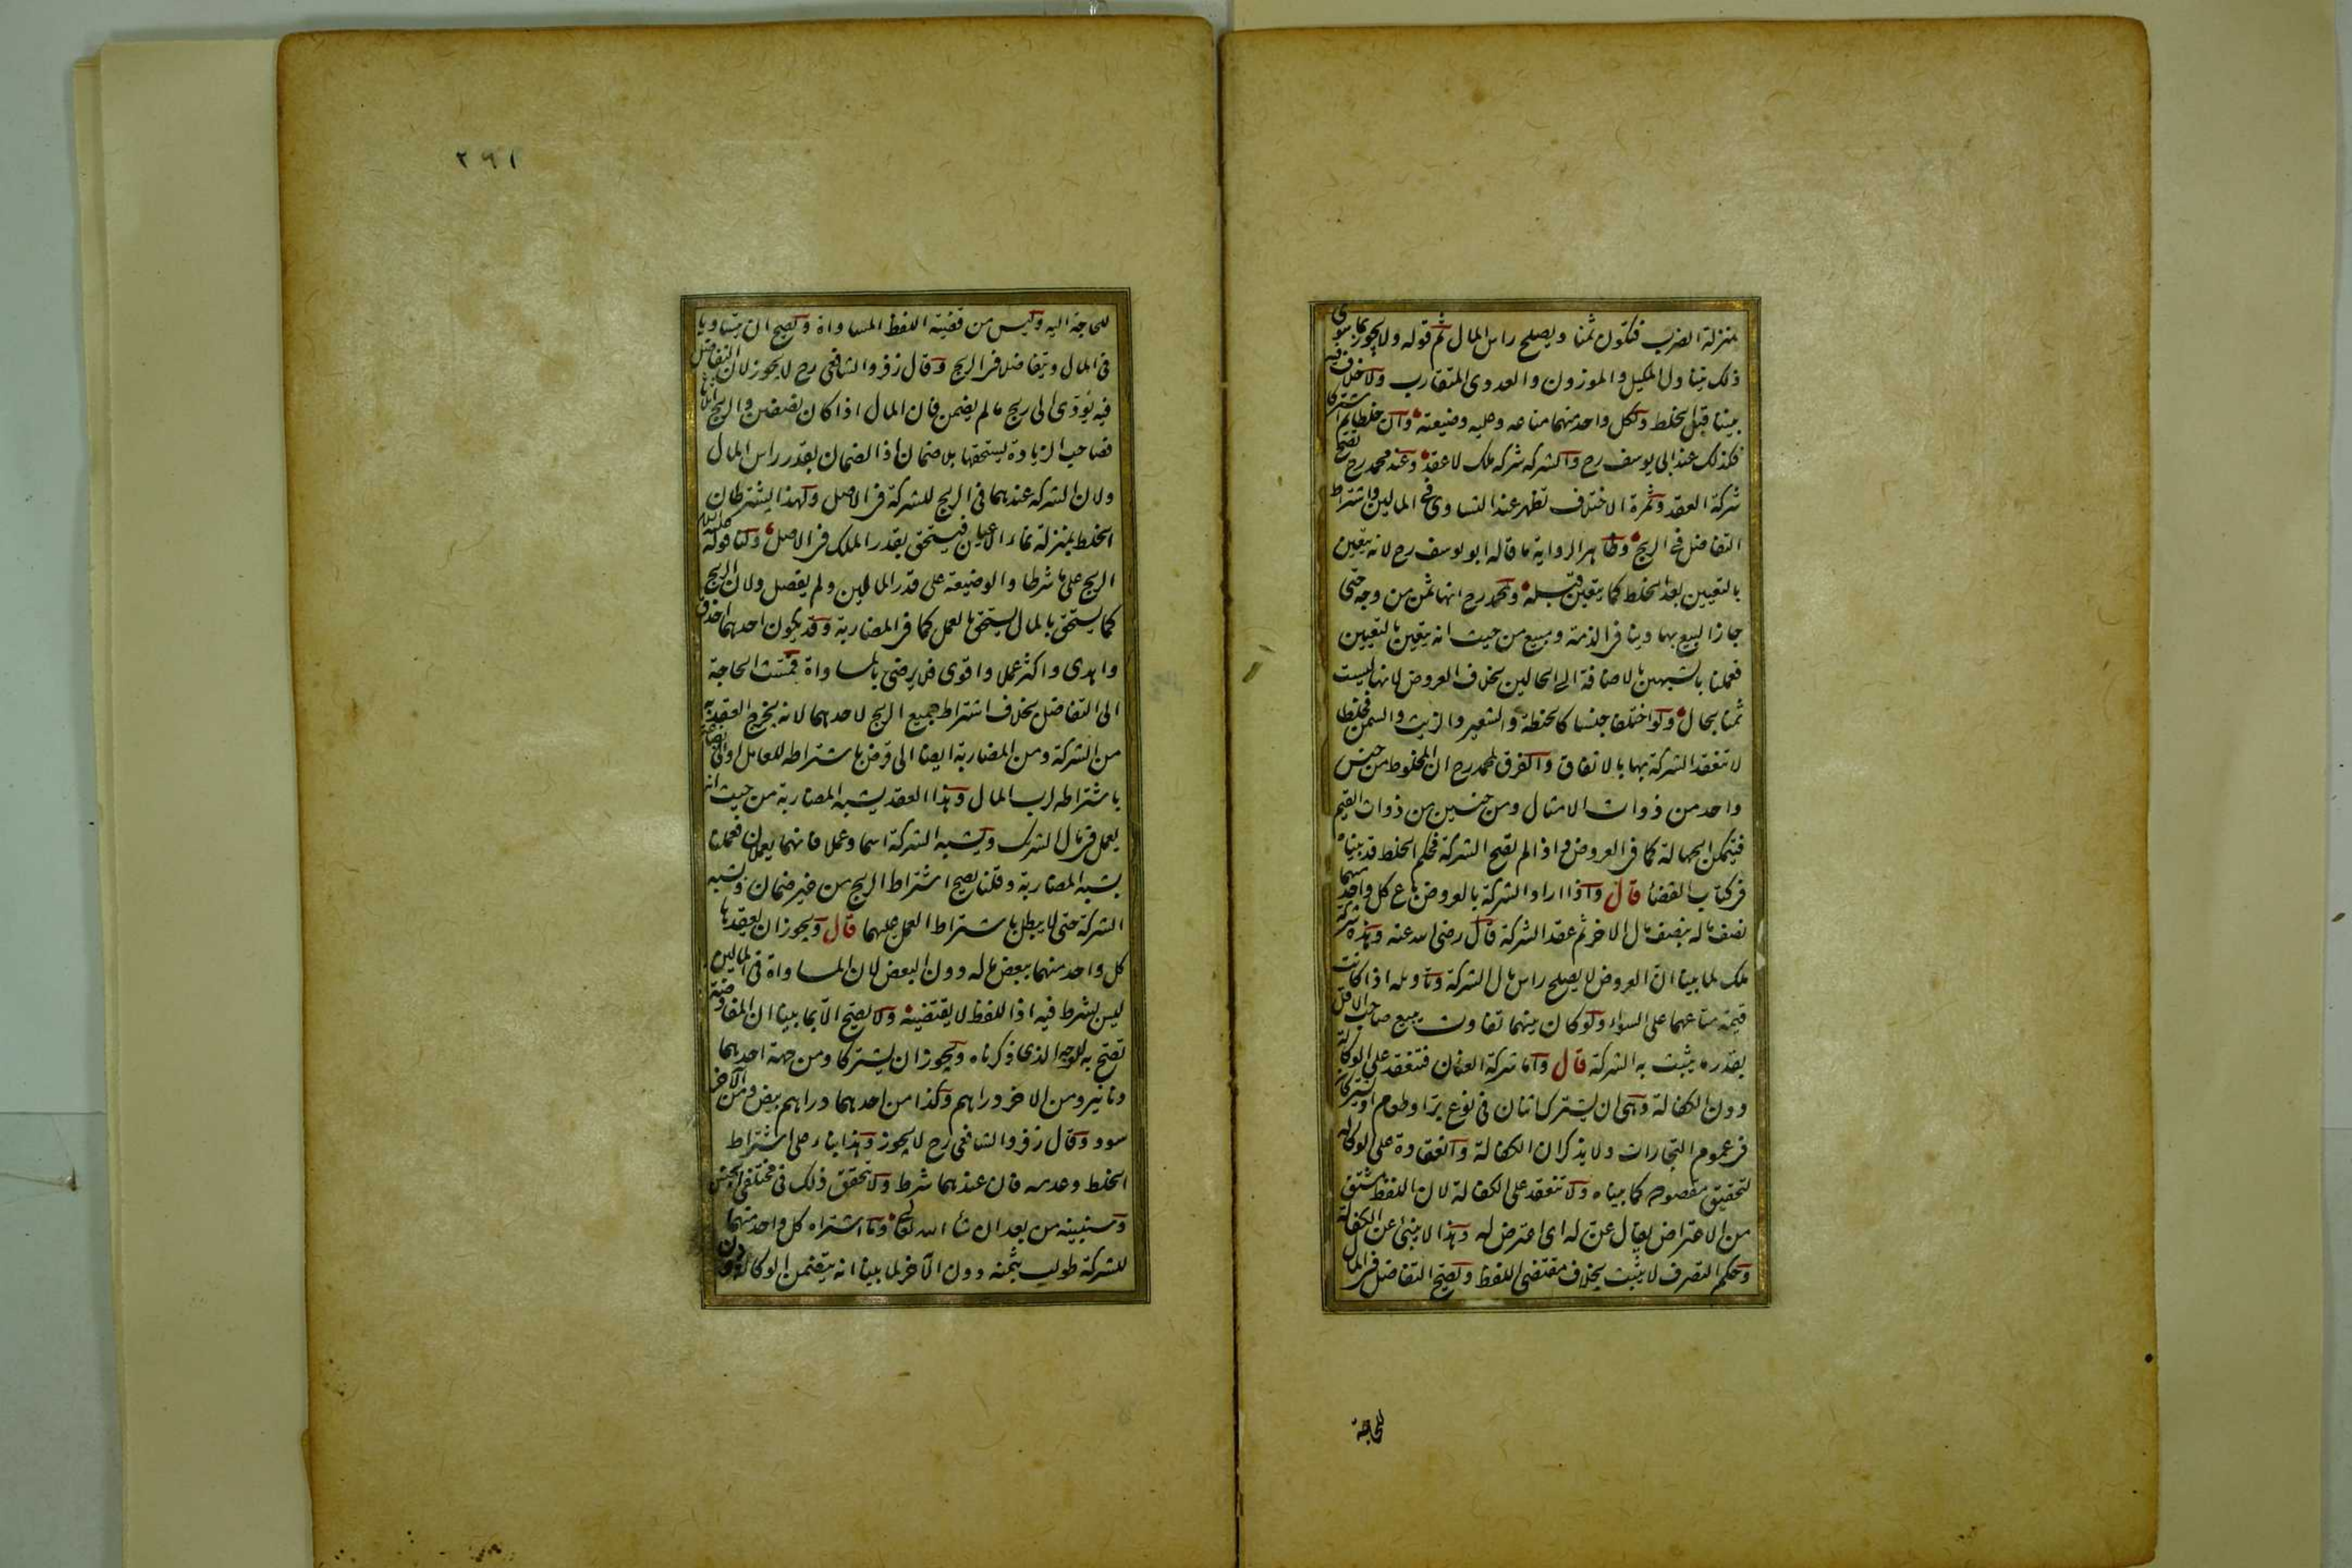 بمنزلة الضرب فتكون ثمنا ويصلح راس المال ثم قوله ولا يجوز بما سوى
ذلك يتناول المكيل والموزون والعددى المتقارب ولا خلاف فيه
بيننا قبل الخلط ولكل واحد منهما متاعه وعليه وضيعته وان خلطا ثم اشتركا
فكذلك عند ابى يوسف رح والشركة شركة ملك لا عقد وعند محمد رح تصح
شركة العقد وثمرة الاختلاف تظهر عند التساوى فى المالين واشتراط
التفاضل فى الربح وظاهر الرواية ما قاله ابو يوسف رح لانه يتعين
بالتعيين بعد الخلط كما يتعين قبله ولمحمد رح انها ثمن من وجه حتى
جاز البيع بها دينا فى الذمة ومبيع من حيث انه يتعين بالتعيين
فعملنا بالشبهين بالاضافة الى الحالين بخلاف العروض لانها ليست
ثمنا بحال ولو اختلفا جنسا كالحنطة والشعير والزيت والسمن فخلطا
لا تنعقد الشركة بهما بالاتفاق والفرق لمحمد رح ان المخلوط من جنس
واحد من ذوات الامثال ومن جنسين من ذوات القيم
فيتمكن الجهالة كما فى العروض واذا لم تصح الشركة فحكم الخلط قد بيناه
فى كتاب القضا قال واذا اراد الشركة بالعروض باع كل واحد منهما
نصف ماله بنصف مال الاخر ثم عقد الشركة قال رضى الله عنه وهذه شركة
ملك لما بينا ان العروض لا يصلح راس مال الشركة وتاويله اذا كانت
قيمة متاعهما على السواء ولو كان بينهما تفاوت يبيع صاحب الاقل
بقدر ما يثبت به الشركة قال واما شركة العنان فتنعقد على الوكالة
دون الكفالة وهى ان يشترك اثنان فى نوع بر او طعام او يشتركان
فى عموم التجارات ولا يذكران الكفالة وانعقاده على الوكالة
لتحقيق مقصوده كما بيناه ولا تنعقد على الكفالة لان اللفظ مشتق
من الاعتراض يقال عن له اى اعترض له وهذا لا ينبئ عن الكفالة
وحكم التصرف لا يثبت بخلاف مقتضى اللفظ ويصح التفاضل فى المال
للحاجة
٢٩١
للحاجة اليه وليس من قضية اللفظ المساواة ويصح ان يتساويا
فى المال ويتفاضلا فى الربح وقال زفر والشافعى رح لا يجوز لان التفاضل
فيه يؤدى الى ربح ما لم يضمن فان المال اذا كان نصفين والربح اثلاثا
فصاحب الزيادة يستحقها بلا ضمان اذ الضمان بقدر راس المال
ولان الشركة عندهما فى الربح للشركة فى الاصل ولهذا يشترطان
الخلط بمنزلة نماء الاعيان فيستحق بقدر الملك فى الاصل ولنا قوله عليه السلام
الربح على ما شرطا والوضيعة على قدر المالين ولم يفصل ولان الربح
كما يستحق بالمال يستحق بالعمل كما فى المضاربة وقد يكون احدهما احذق
واهدى واكثر عملا واقوى فلا يرضى بالمساواة فمست الحاجة
الى التفاضل بخلاف اشتراط جميع الربح لاحدهما لانه يخرج العقد به
من الشركة ومن المضاربة ايضا الى قرض باشتراطه للعامل او الى بضاعة
باشتراطه لرب المال وهذا العقد يشبه المضاربة من حيث انه
يعمل فى مال الشريك ويشبه الشركة اسما وعملا فانهما يعملان فعملنا
بشبه المضاربة وقلنا يصح اشتراط الربح من غير ضمان وبشبه
الشركة حتى لا يبطل باشتراط العمل عليهما قال ويجوز ان يعقدها
كل واحد منهما ببعض ماله دون البعض لان المساواة فى المالين
ليس بشرط فيه اذ اللفظ لا يقتضيه ولا يصح الا بما بينا ان المفاوضة
تصح به للوجه الذى ذكرناه ويجوز ان يشتركا ومن جهة احدهما
دنانير ومن الاخر دراهم وكذا من احدهما دراهم بيض ومن الاخر
سود وقال زفر والشافعى رح لا يجوز وهذا بناء على اشتراط
الخلط وعدمه فان عندهما شرط ولا يتحقق ذلك فى مختلفى الجنس
وسنبينه من بعد ان شا الله تعالى وما اشتراه كل واحد منهما
للشركة طولب بثمنه دون الآخر لما بينا انه يتضمن الوكالة دون